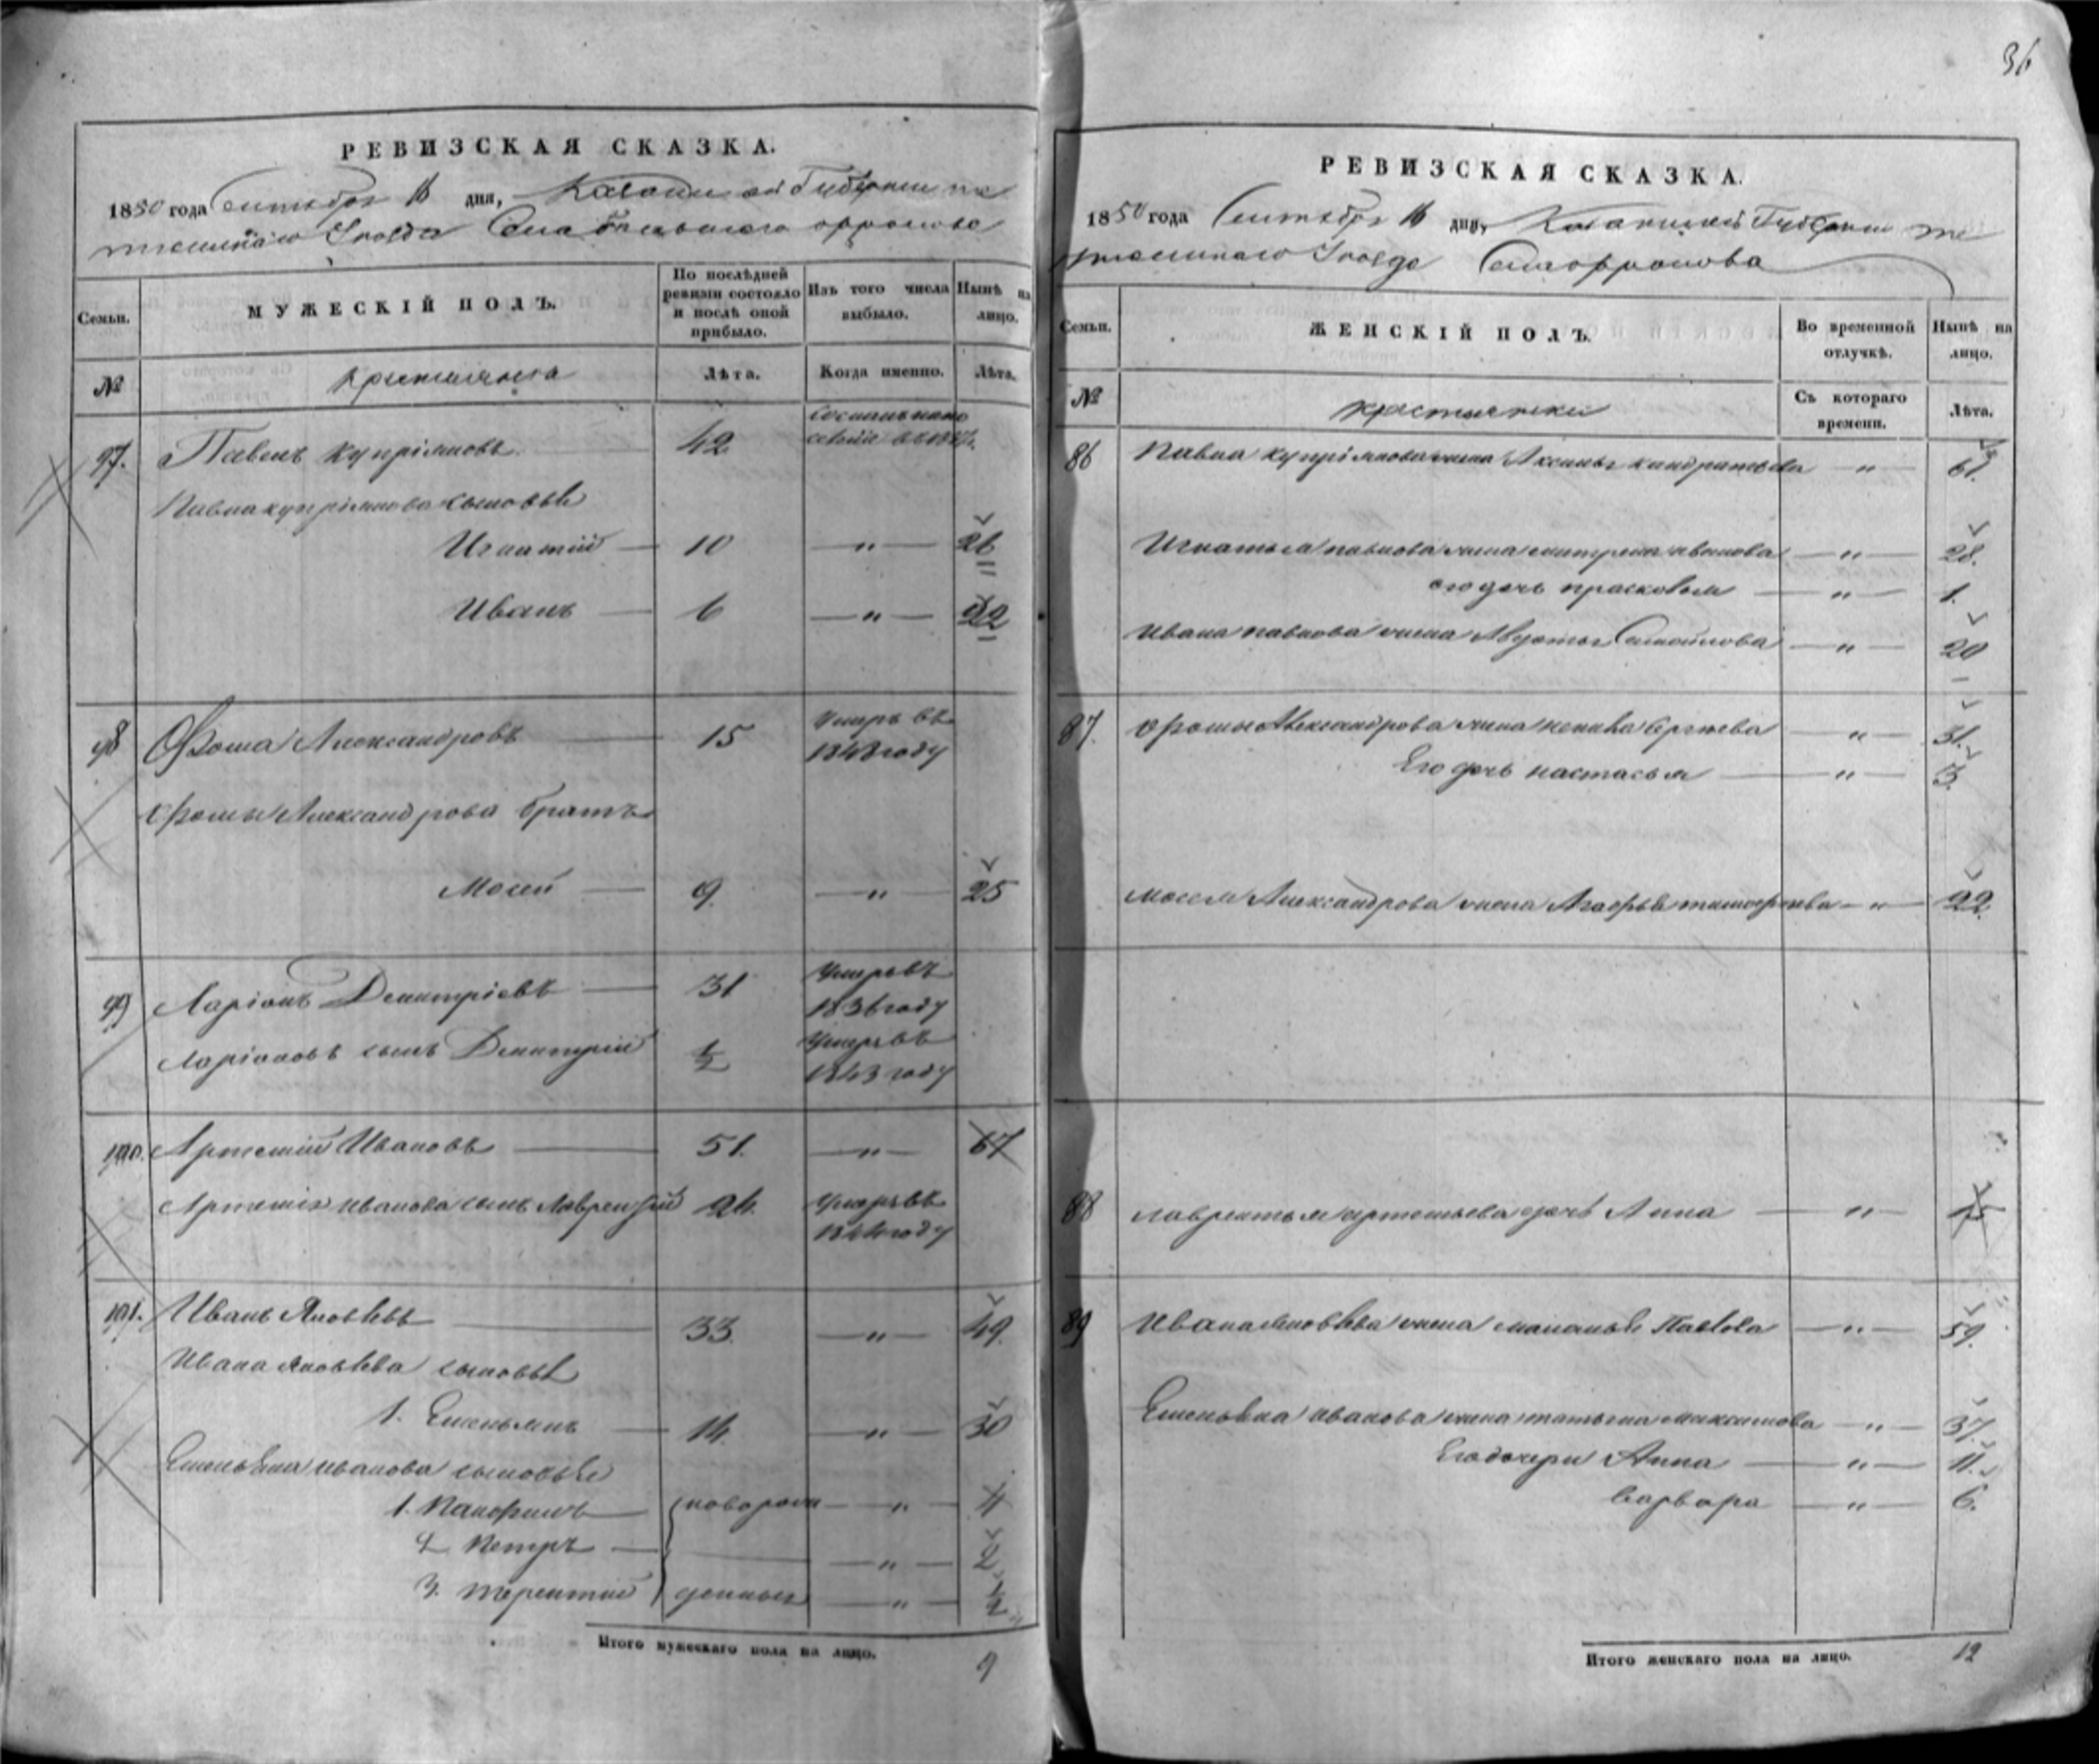 36
РЕВИЗСКАЯ СКАЗКА.
1850 года Сентября 16 дня, Казанской Губерніи Те
тюшскаго Уезда Села Большаго
Семьи.
МУЖЕСКІЙ ПОЛЪ.
По послѣдней ревизіи состояло и послѣ оной прибыло.
Изъ того числа выбыло.
Нынѣ на лицо.
№
Крестьяне
Лѣта.
Когда именно.
Лѣта.
97. Павелъ Купріяновъ 42
Павла Купріянова сыновье
Игнатій — 10 — „ — 26
Иванъ — 6 — „ — 22
98 Фома Александровъ — 15 Умеръ въ 1848 году
Фомы Александрова братъ
Мосей — 9. — „ — 25
99 Ларіонъ Дмитріевъ — 31 Умеръ въ 1836 году
Ларіоновъ сынъ Дмитрій ½ Умеръ въ 1843 году
100. Артемій Ивановъ — 51. — „ — 67
Артемія Иванова сынъ Лаврентій 24. Умеръ въ 1844 году
101. Иванъ Яковлевъ — 33. — „ — 49.
Ивана Яковлева сыновье
1. Емельянъ — 14. — „ — 30
Емельяна Иванова сыновье
1. Панфилъ — новорож — „ — 4
2 Петръ — „ — 2
3. Терентий денныя — „ — ½
Итого мужескаго пола на лицо. 9
РЕВИЗСКАЯ СКАЗКА.
1850 года Сентября 16 дня, Казанской Губерніи Те
тюшскаго Уезда Села
Семьи.
ЖЕНСКІЙ ПОЛЪ.
Во временной отлучкѣ.
Нынѣ на лицо.
№
крестьянки
Съ котораго времени.
Лѣта.
86 Павла Купріянова жена Аксинья Кандратьева — „ — 61.
Игнатья Павлова жена Иванова — „ — 28.
его дочь Прасковья — „ — 1.
Ивана Павлова жена Самойлова — „ — 20
87. Фомы Александрова жена Сергеева — „ — 31.
Его дочь Настасья — „ — 3.
Мосея Александрова жена Агафья Тимофеева — „ — 22.
88 Лаврентья Артемьева дочь Анна — „ — 15
89 Ивана Яковлева жена Маланья Павлова — „ — 59.
Емельяна Иванова жена Татьяна Максимова — „ — 37.
Его дочери Анна — „ — 11.
Варвара — „ — 6.
Итого женскаго пола на лицо. 12